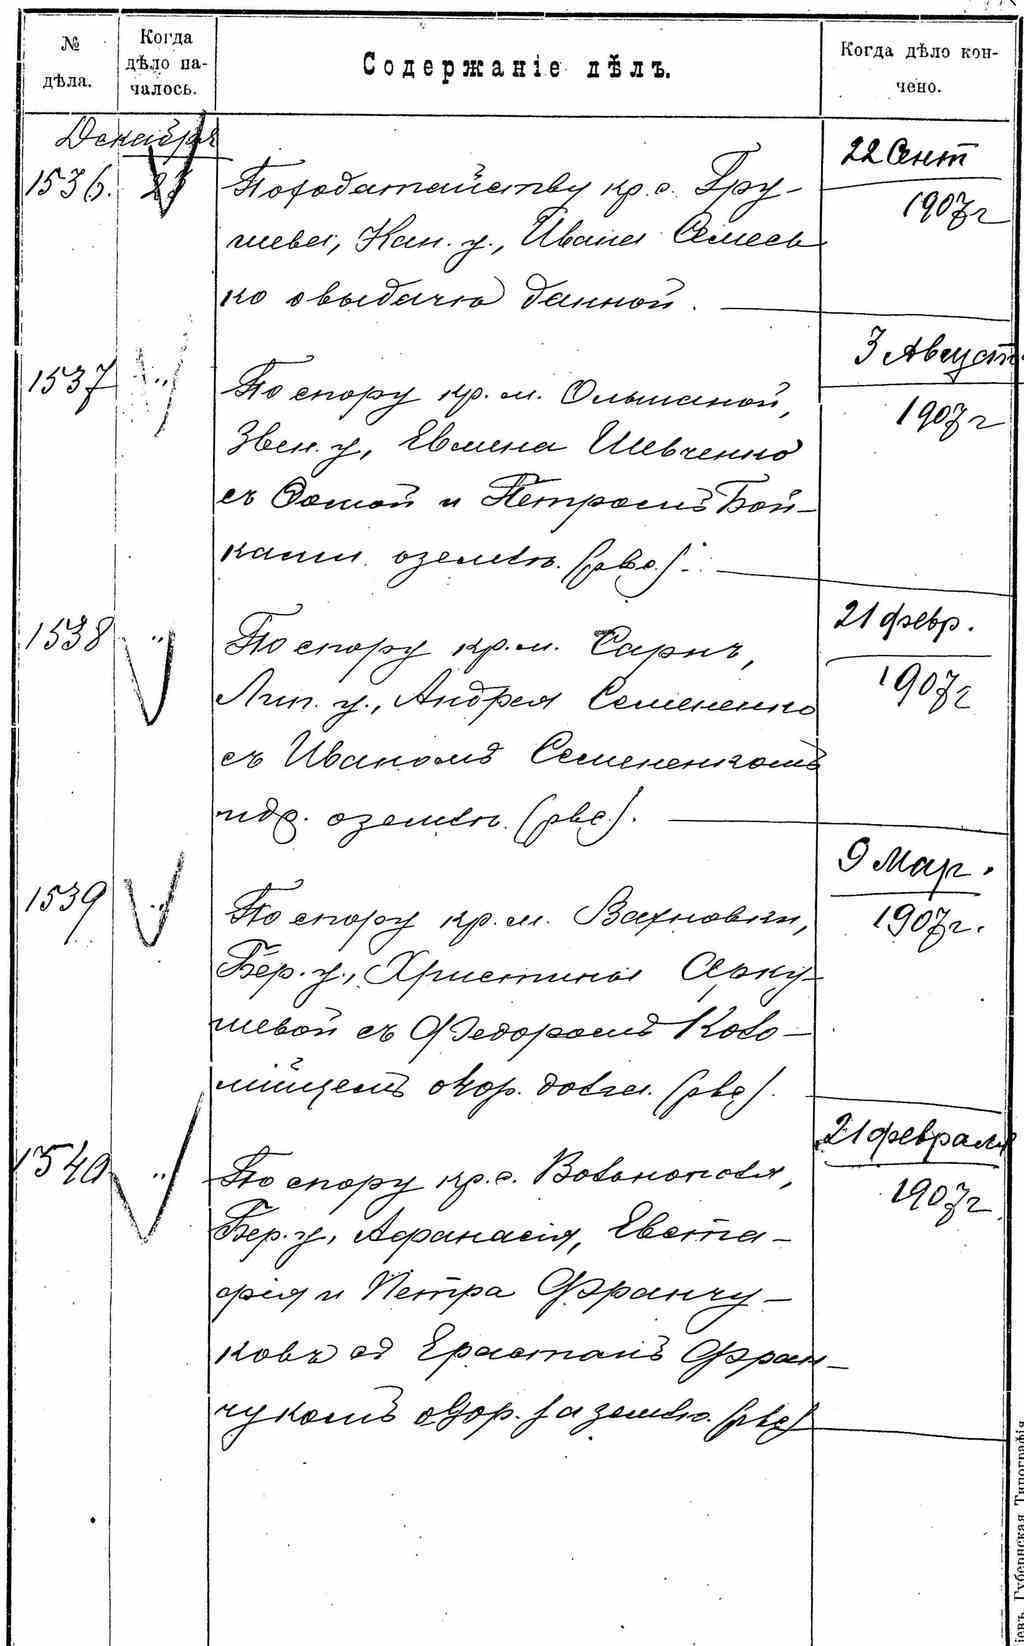 № дѣла.
Когда дѣло на-
чалось.
Содержаніе дѣлъ.
Когда дѣло кон-
чено.
Декабря
1536.
По ходатайству кр. с. Гру-
шева, Кан. у., Ивана Семесь
ко о выдачѣ данной.
22 Сент
1907 г
1537
По спору кр. м. Ольшаной,
Звен. у., Евмена Шевченко
съ Фомой и Петромъ Бой-
ками о землѣ. (рвс.).
3 Август
1907 г
1538 "
По спору кр. м. Сарнъ,
Лип. у., Андрея Семененко
съ Иваномъ Семененкомъ
и др. о землѣ. (рвс.).
21 февр.
1907 г
1539 "
По спору кр. м. Вахновки,
Бер. у., Христины Арку-
шевой съ Федоромъ Коло-
мійцемъ о вор. долга. (рвс).
9 Мар.
1907 г.
1540 "
По спору кр. с. Вольнополя,
Бер. у., Афанасія, Евста-
фія и Петра Франчу-
ковъ съ Ерастомъ Фран-
чукомъ о вор. за землю. (рвс)
21 февраля
1907 г
Губернская Типографія